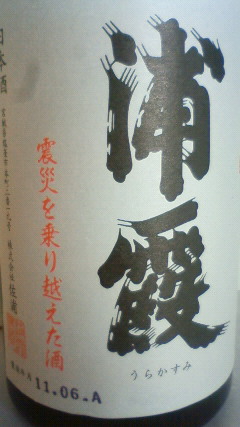 浦霞
うらかすみ
震災を乗り越えた酒
日本酒
株式会社 佐浦
11.06.A